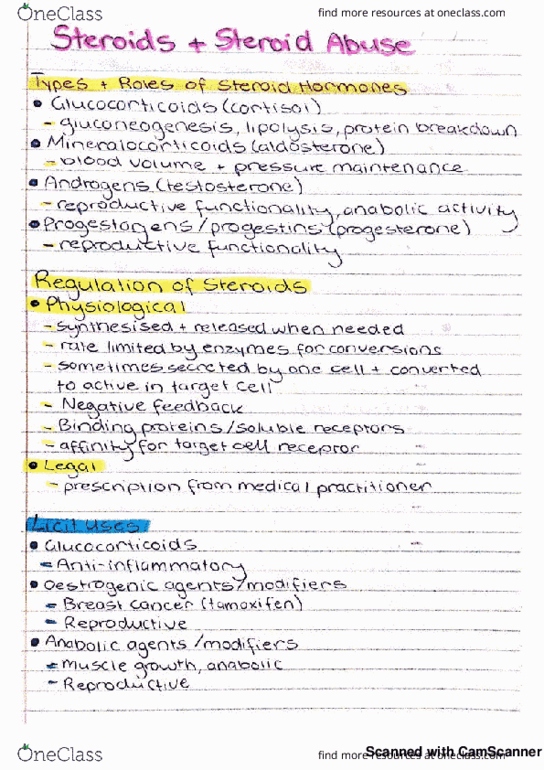 OneClass find more resources at oneclass.com
Steroids + Steroid Abuse
Types + Roles of Steroid Hormones
• Glucocorticoids (cortisol)
- gluconeogenesis, lipolysis, protein breakdown
• Mineralocorticoids (aldosterone)
- blood volume + pressure maintenance
• Androgens (testosterone)
- reproductive functionality, anabolic activity
• Progestogens/progestins (progesterone)
- reproductive functionality
Regulation of Steroids
• Physiological
- synthesised + released when needed
- rate limited by enzymes for conversions
- sometimes secreted by one cell + converted
to active in target cell
- Negative feedback
- Binding proteins/soluble receptors
- affinity for target cell receptor
• Legal
- prescription from medical practitioner
Licit uses
• Glucocorticoids
- Anti-inflammatory
• Oestrogenic agents/modifiers
- Breast cancer (tamoxifen)
- Reproductive
• Anabolic agents/modifiers
- Muscle growth, anabolic
- Reproductive
OneClass find more resources at oneclass.com
Scanned with CamScanner